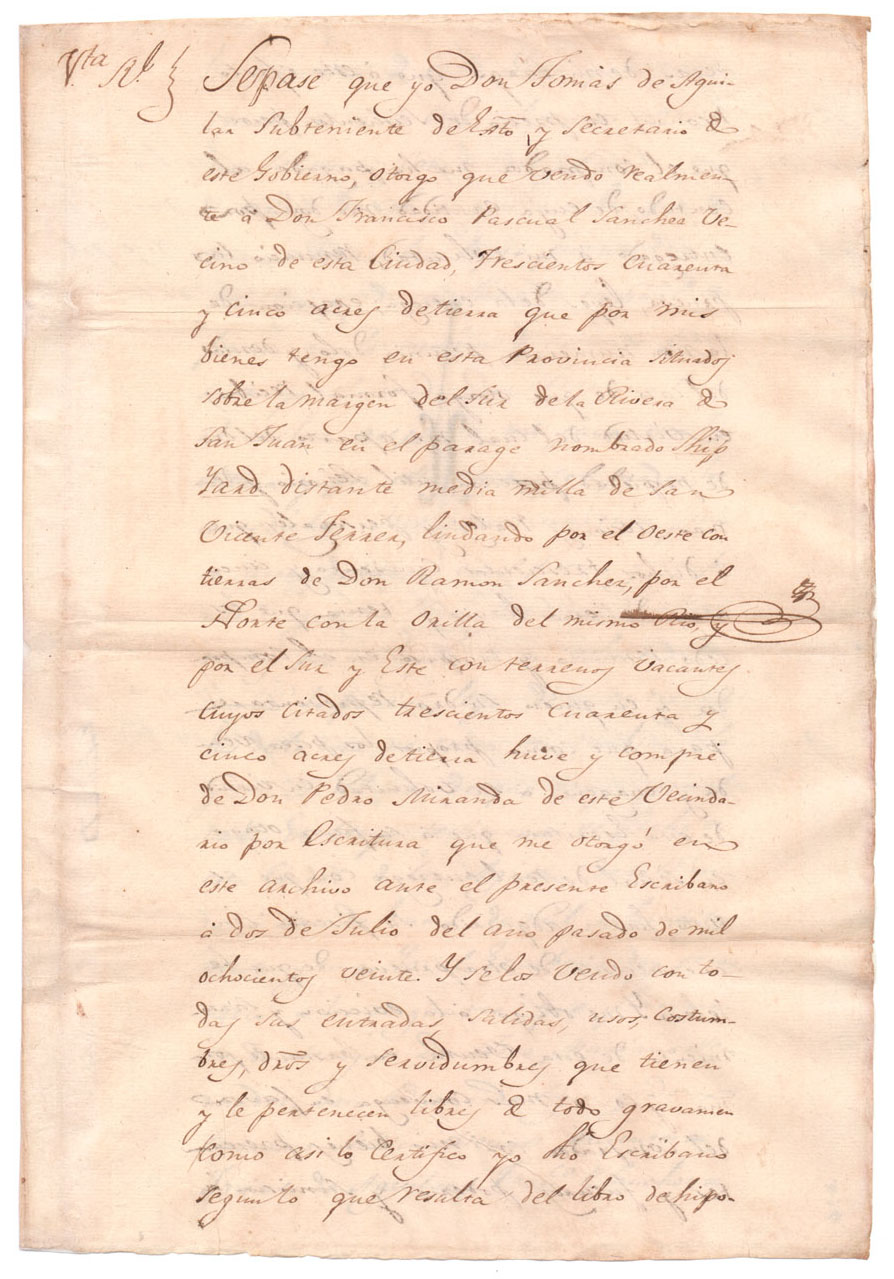 V.ta Rl
Sepase que yo Don Tomas de Agui-
lar Subteniente de Exto, y Secretario de
este Gobierno, otorgo que vendo realmen-
te á Don Francisco Pascual Sanchez Ve-
cino de esta Ciudad, Trescientos cuarenta
y cinco acres de tierra que por mis
bienes tengo en esta Provincia situados
sobre la margen del Sur de la Rivera de
San Juan en el parage nombrado Ship
Yard distante media milla de San
Vicente Ferrer, lindando por el oeste con
tierras de Don Ramon Sanchez, por el
Norte con la Orilla del mismo Rio, y
por el Sur y Este con terrenos vacantes
cuyos citados trescientos cuarenta y
cinco acres de tierra huve y compré
de Don Pedro Miranda de este Vecinda-
rio por Escritura que me otorgó en
este archivo ante el presente Escribano
á dos de Julio del año pasado de mil
ochocientos veinte. Y se los vendo con to-
das sus entradas, salidas, usos, costum-
bres, dros y servidumbres que tienen
y le pertenecen libres de todo gravamen
como asi lo Certifico yo dho Escribano
segun lo que resulta del libro de hipo-